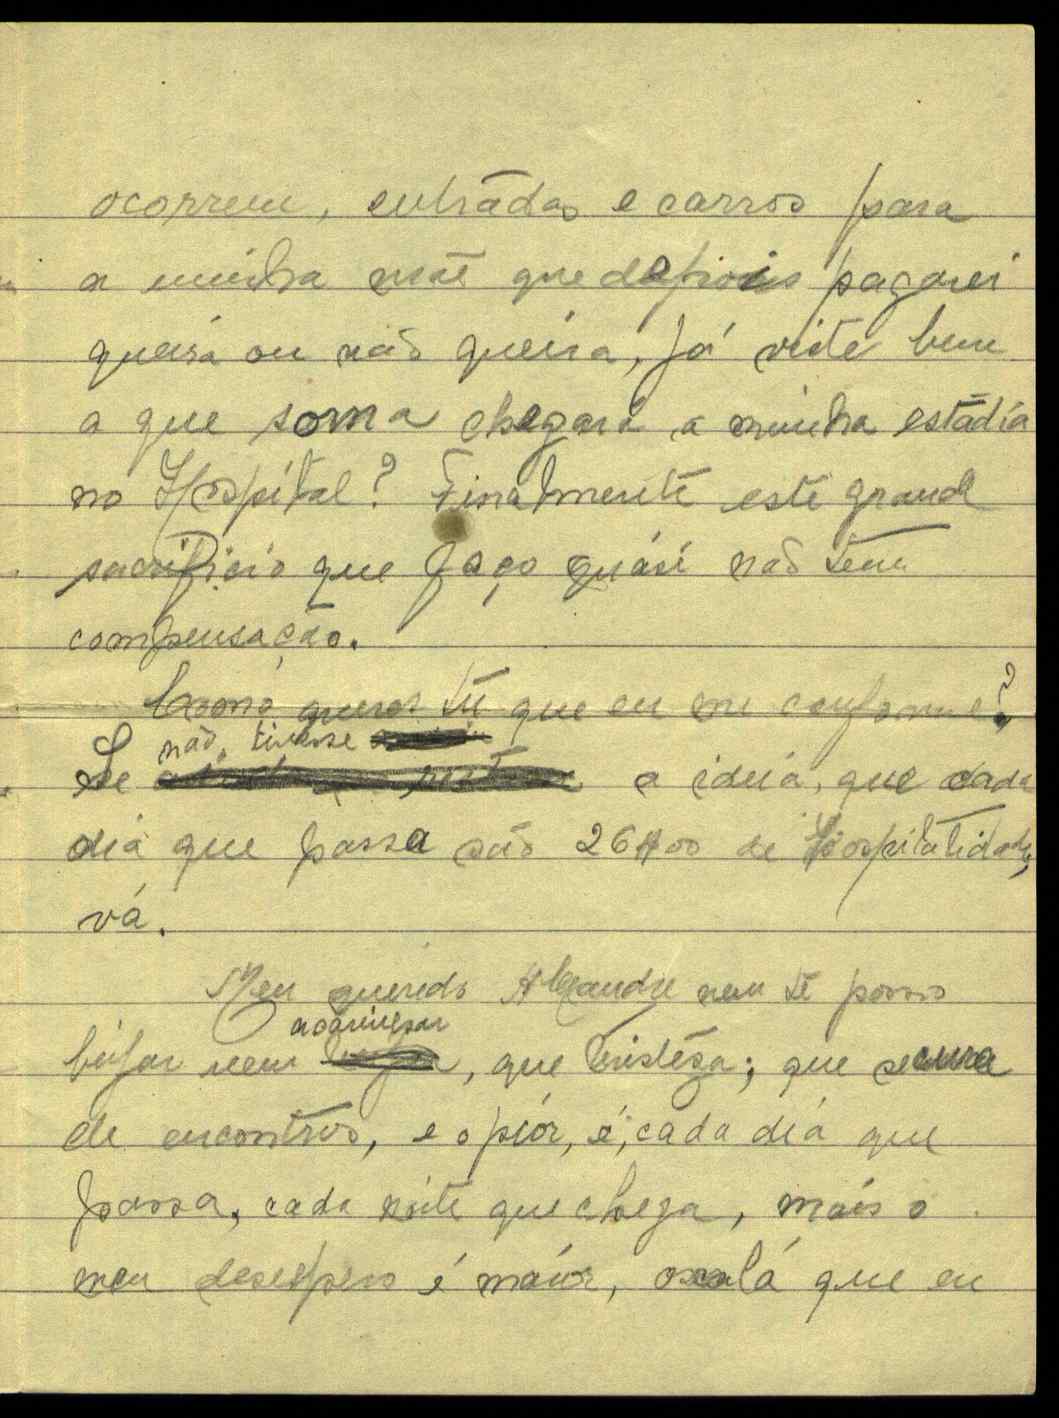 ocorrem, entrádas e carros para
a minha mãe que depois pagarei
queira ou não queira, já viste bem
a que soma chegará a minha estádia
no Hospítal? Finalmente este grande
sacrificio que faço quási não têm
compensação.
Como queres tu que eu me conforme?
não, tivesse
Se a ideia, que cada
dia que passa são 26$00 de Hospitalidade,
vá.
Meu querido Alexandre nem te posso
acarinhar
beijar nem, que tristêza; que secura
de encontros, e o piór, é, cada diá que
passa, cada noite que chega, máis o
meu desespero é maiór, oxalá que eu